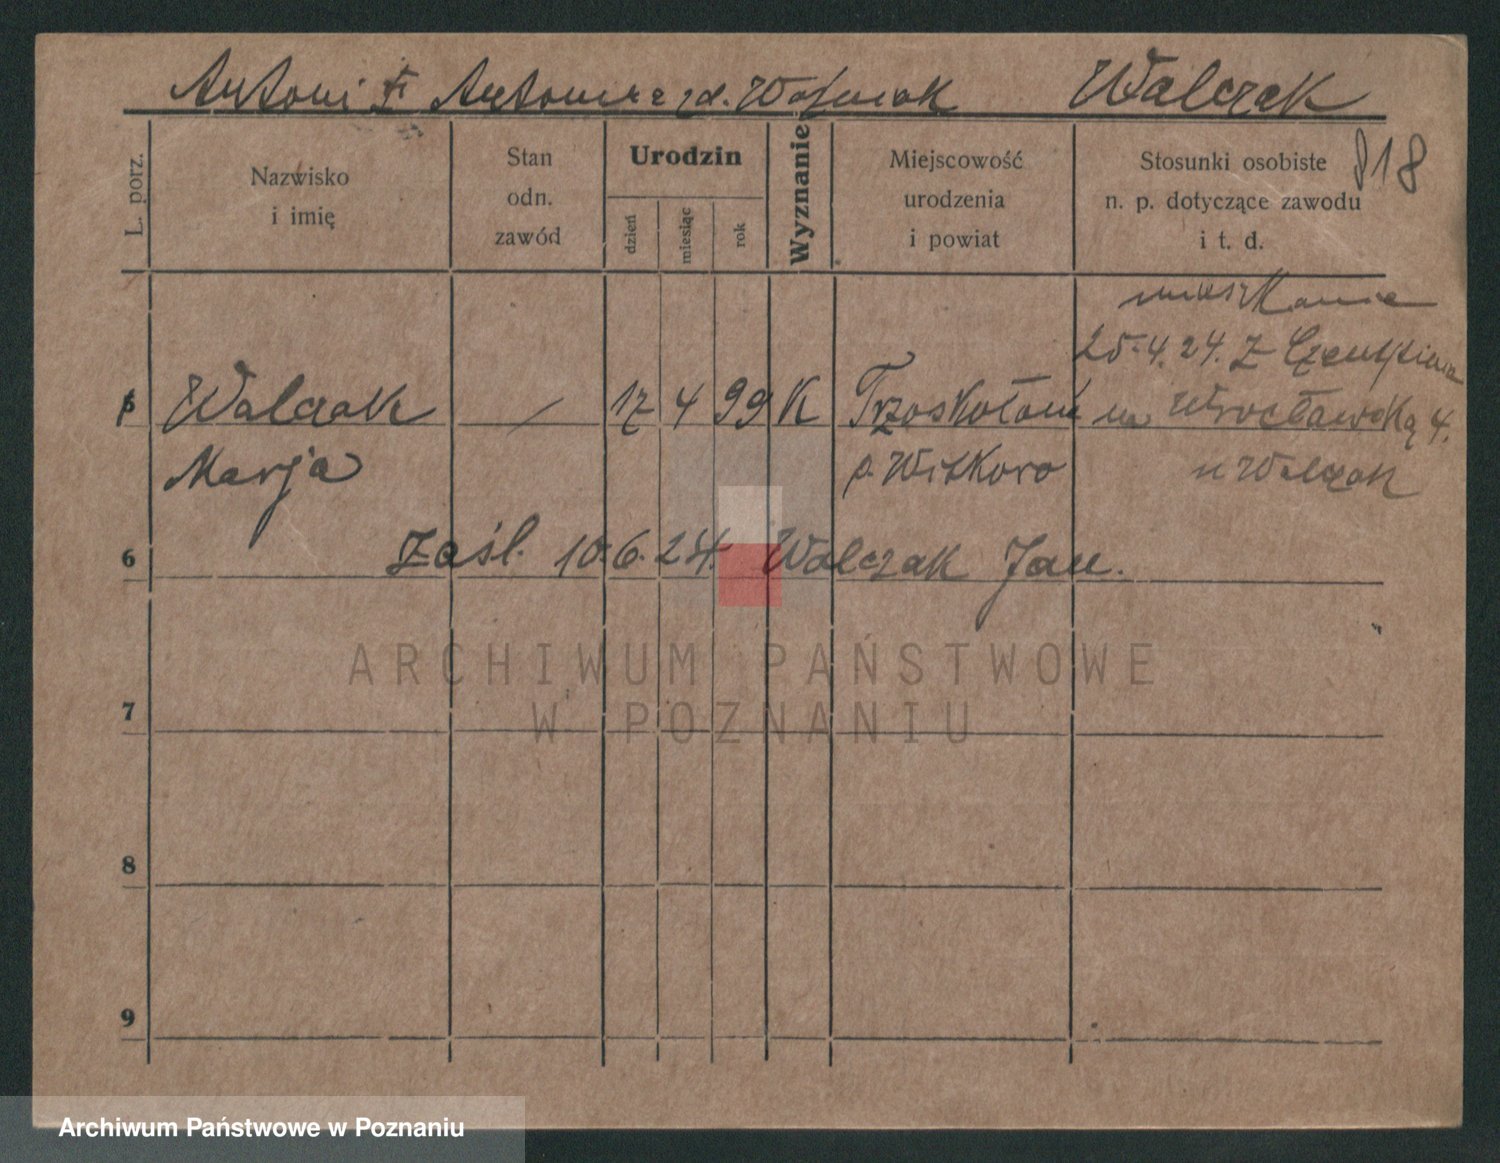 Antoni Antonina zd. Woźniak Walczak
818
L. porz.
Nazwisko
i imię
Stan
odn.
zawód
Urodzin
dzień
miesiąc
rok
Wyznanie
Miejscowość
urodzenia
i powiat
Stosunki osobiste
n. p. dotyczące zawodu
i t. d.
mieszkanie
25.4.24. z
Walczak / 17 4 99 K Trzoskołoń na Wrocławską 4.
Marja p. Witkowo u Walczak
6 Zaśl. 10.6.24. Walczak Jan.
7
8
9
ARCHIWUM PAŃSTWOWE
W POZNANIU
Archiwum Państwowe w Poznaniu